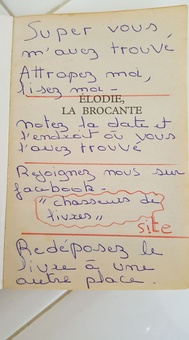 Super vous
m'avez trouvé
Attrapez moi,
lisez moi -
ÉLODIE,
LA BROCANTE
notez la date et
l'endroit où vous
l'avez trouvé
Rejoignez nous sur
facebook -
"chasseurs de
livres"
site
Redéposez le
livre à une
autre place.